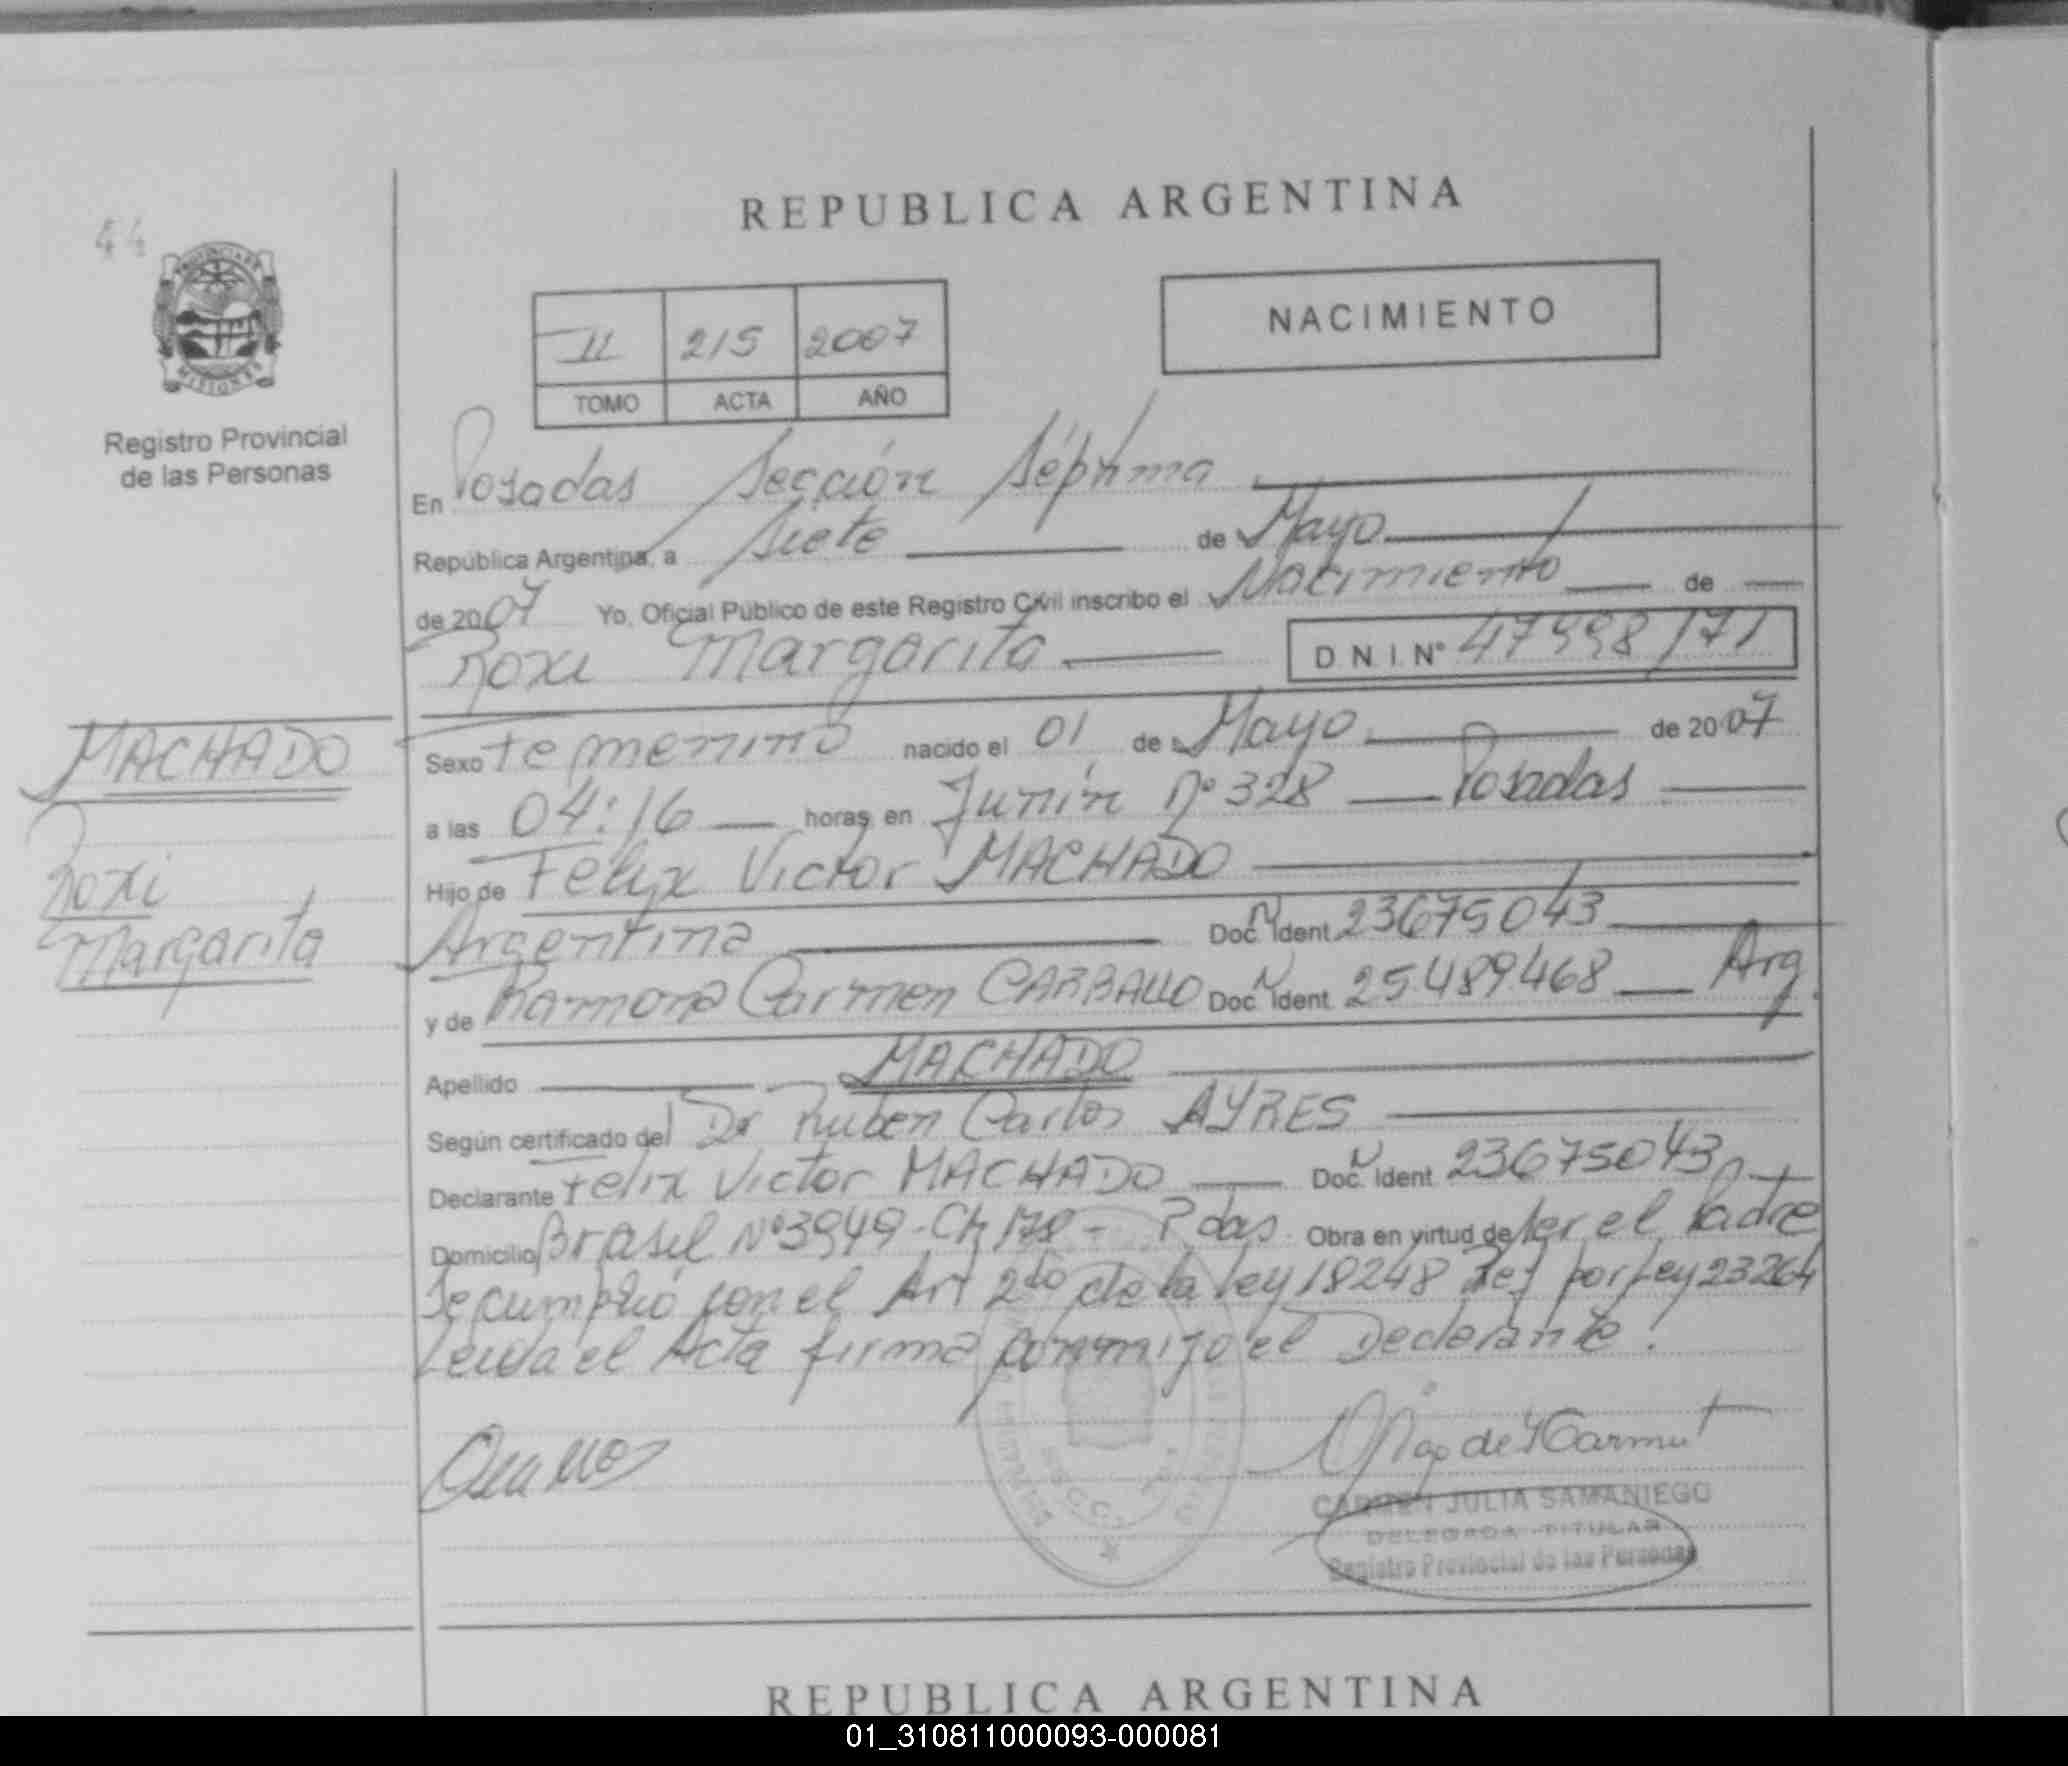 REPUBLICA ARGENTINA
44
PROVINCIA DE
MISIONES
Registro Provincial
de las Personas
II 215 2007
TOMO ACTA AÑO
NACIMIENTO
En Posadas Sección Séptima
República Argentina, a Siete de Mayo
de 2007 Yo, Oficial Público de este Registro Civil inscribo el Nacimiento de
Roxi Margarita D N I Nº
MACHADO
Roxi
Margarita
Sexo femenino nacido el 01 de Mayo de 2007
a las 04:16 horas en Junín Nº 328 Posadas
Hijo de Félix Victor MACHADO
Argentina Doc. N Ident 23675043
y de Ramona Carmen CARBALLO Doc. N Ident 25.489.468 Arg.
Apellido MACHADO
Según certificado del Dr Ruben Carlos AYRES
Declarante Felix Victor MACHADO Doc. N Ident 23675043
Domicilio Brasil Nº 3949 - Ch 178 - Pdas. Obra en virtud de ser el Padre
Se cumplió con el Art 2do de la Ley 18248 Ref por Ley 23264
Leida el Acta firma conmigo el Declarante.
CARMEN JULIA SAMANIEGO
DELEGADA TITULAR
Registro Provincial de las Personas
REPUBLICA ARGENTINA
01_310811000093-000081